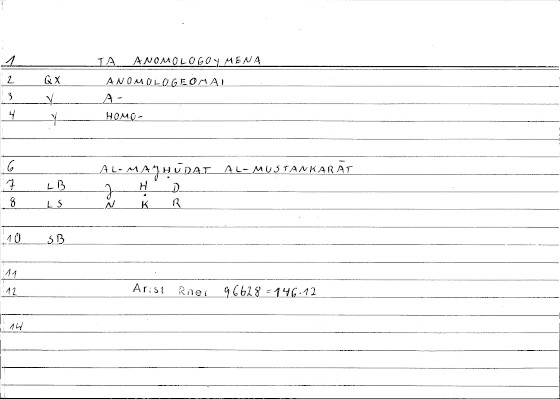 1 TA ANOMOLOGOYMENA
2 QX ANOMOLOGEOMAI
3 Y A-
4 Y HOMO-
6 AL-MAǧḤŪDAT AL-MUSTANKARĀT
7 LB ǧ Ḥ D
8 LS N K R
10 SB
11
12 Arist Rhet 96b28=146.12
14